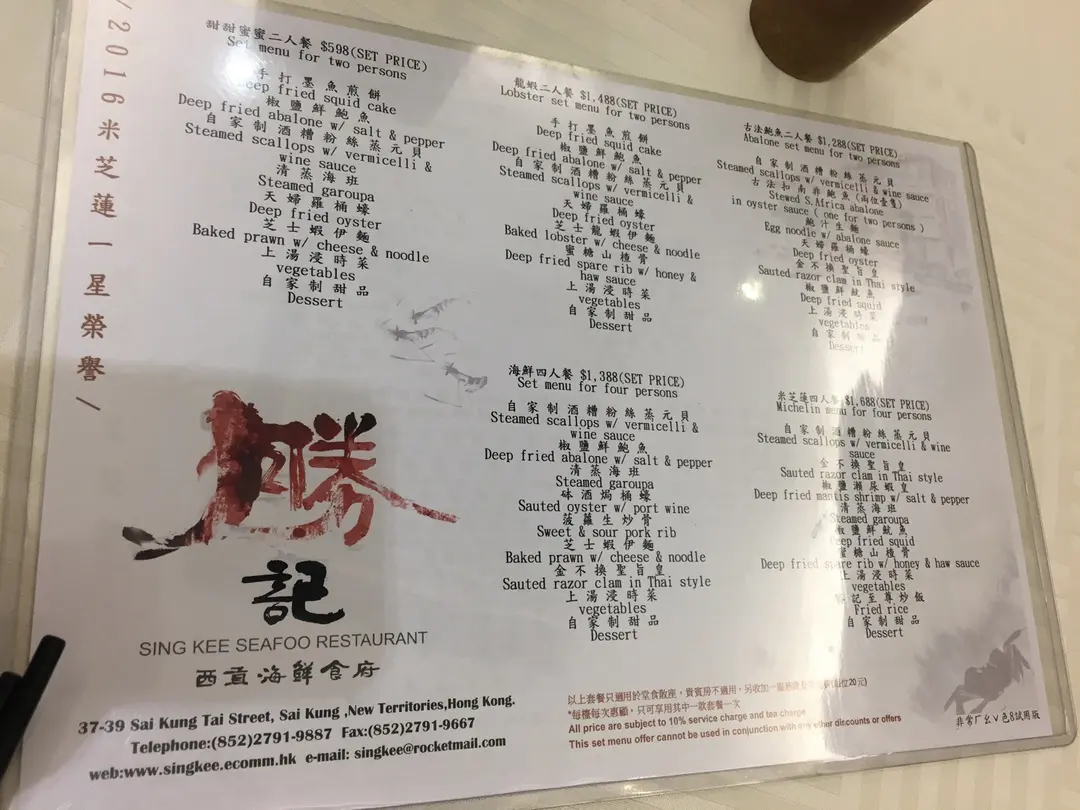 /2016米芝蓮一星榮譽/
甜甜蜜蜜二人餐 $598(SET PRICE)
Set menu for two persons
手打墨魚煎餅
Deep fried squid cake
椒鹽鮮鮑魚
Deep fried abalone w/ salt & pepper
自家制酒糟粉絲蒸元貝
Steamed scallops w/ vermicelli &
wine sauce
清蒸海班
Steamed garoupa
天婦羅桶蠔
Deep fried oyster
芝士蝦伊麵
Baked prawn w/ cheese & noodle
上湯浸時菜
vegetables
自家制甜品
Dessert
龍蝦二人餐 $1,488(SET PRICE)
Lobster set menu for two persons
手打墨魚煎餅
Deep fried squid cake
椒鹽鮮鮑魚
Deep fried abalone w/ salt & pepper
自家制酒糟粉絲蒸元貝
Steamed scallops w/ vermicelli &
wine sauce
天婦羅桶蠔
Deep fried oyster
芝士龍蝦伊麵
Baked lobster w/ cheese & noodle
蜜糖山楂骨
Deep fried spare rib w/ honey &
haw sauce
上湯浸時菜
vegetables
自家制甜品
Dessert
古法鮑魚二人餐 $1,288(SET PRICE)
Abalone set menu for two persons
自家制酒糟粉絲蒸元貝
Steamed scallops w/ vermicelli & wine sauce
古法扣南非鮑魚(兩位壹隻)
Stewed S.Africa abalone
in oyster sauce ( one for two persons )
鮑汁生麵
Egg noodle w/ abalone sauce
天婦羅桶蠔
Deep fried oyster
金不換聖旨皇
Sauted razor clam in Thai style
椒鹽鮮魷魚
Deep fried squid
上湯浸時菜
vegetables
自家制甜品
Dessert
海鮮四人餐 $1,388(SET PRICE)
Set menu for four persons
自家制酒糟粉絲蒸元貝
Steamed scallops w/ vermicelli &
wine sauce
椒鹽鮮鮑魚
Deep fried abalone w/ salt & pepper
清蒸海班
Steamed garoupa
砵酒焗桶蠔
Sauted oyster w/ port wine
菠蘿生炒骨
Sweet & sour pork rib
芝士蝦伊麵
Baked prawn w/ cheese & noodle
金不換聖旨皇
Sauted razor clam in Thai style
上湯浸時菜
vegetables
自家制甜品
Dessert
米芝蓮四人餐 $1,688(SET PRICE)
Michelin menu for four persons
自家制酒糟粉絲蒸元貝
Steamed scallops w/ vermicelli & wine
sauce
金不換聖旨皇
Sauted razor clam in Thai style
椒鹽瀨尿蝦皇
Deep fried mantis shrimp w/ salt & pepper
清蒸海班
Steamed garoupa
椒鹽鮮魷魚
Deep fried squid
蜜糖山楂骨
Deep fried spare rib w/ honey & haw sauce
上湯浸時菜
vegetables
記至尊炒飯
Fried rice
自家制甜品
Dessert
勝
記
SING KEE SEAFOO RESTAURANT
西貢海鮮食府
37-39 Sai Kung Tai Street, Sai Kung ,New Territories,Hong Kong.
Telephone:(852)2791-9887 Fax:(852)2791-9667
web:www.singkee.ecomm.hk e-mail: singkee@rocketmail.com
以上套餐只適用於堂食散座，貴賓房不適用，另收加一服務費及 20元)
*每檯每次惠顧，只可享用其中一款套餐一次
All price are subject to 10% service charge and tea charge
This set menu offer cannot be used in conjunction with any other discounts or offers
非常ㄏㄠˇ色8試用版